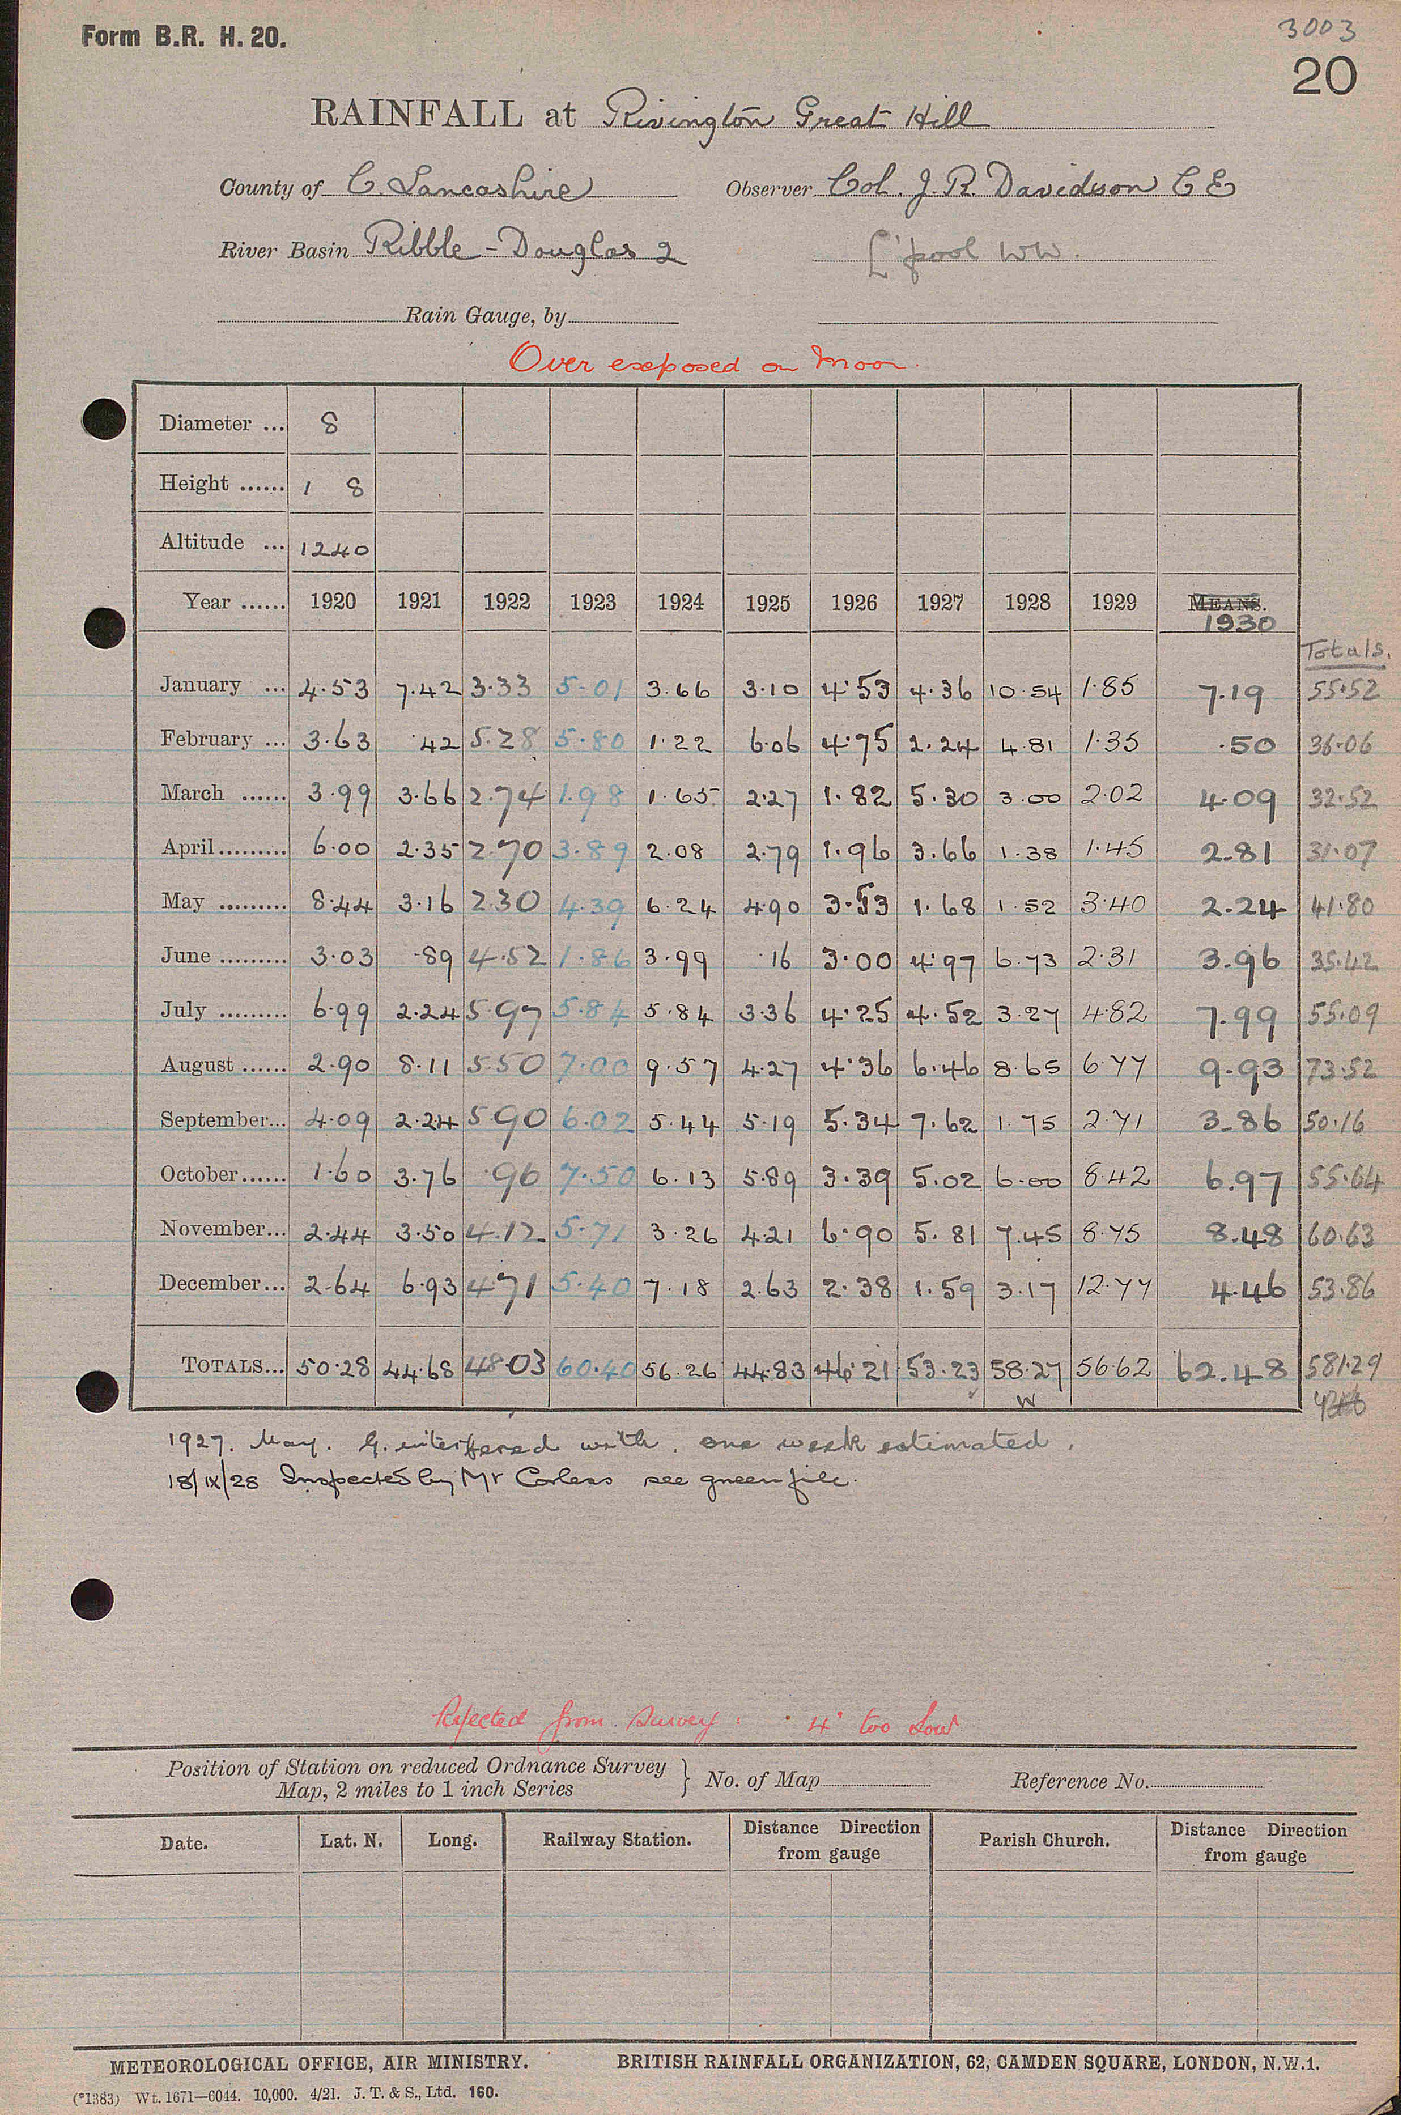 Form B.R. H. 20.
3003
20
RAINFALL at Rivington Great Hill
County of C. Lancashire Observer Col. J. R. Davidson C E
River Basin Ribble - Douglas 2 L'pool WW.
Rain Gauge, by
Over exposed on Moor.
Diameter ... 8
Height ...... 1 8
Altitude ... 1240
Year ...... 1920 1921 1922 1923 1924 1925 1926 1927 1928 1929 MEANS.
1930
Totals.
January ... 4.53 7.42 3.33 5.01 3.66 3.10 4.53 4.36 10.54 1.85 7.19 55.52
February ... 3.63 .42 5.28 5.80 1.22 6.06 4.75 2.24 4.81 1.35 .50 36.06
March ...... 3.99 3.66 2.74 1.98 1.65 2.27 1.82 5.30 3.00 2.02 4.09 32.52
April ......... 6.00 2.35 2.70 3.89 2.08 2.79 1.96 3.66 1.38 1.45 2.81 31.07
May ......... 8.44 3.16 2.30 4.39 6.24 4.90 3.53 1.68 1.52 3.40 2.24 41.80
June ......... 3.03 .89 4.52 1.86 3.99 .16 3.00 4.97 6.73 2.31 3.96 35.42
July ......... 6.99 2.24 5.97 5.84 5.84 3.36 4.25 4.52 3.27 4.82 7.99 55.09
August ...... 2.90 8.11 5.50 7.00 9.57 4.27 4.36 6.46 8.65 6.77 9.93 73.52
September... 4.09 2.24 5.90 6.02 5.44 5.19 5.34 7.62 1.75 2.71 3.86 50.16
October...... 1.60 3.76 .96 7.50 6.13 5.89 3.39 5.02 6.00 8.42 6.97 55.64
November... 2.44 3.50 4.12 5.71 3.26 4.21 6.90 5.81 7.45 8.75 8.48 60.63
December... 2.64 6.93 4.71 5.40 7.18 2.63 2.38 1.59 3.17 12.77 4.46 53.86
TOTALS... 50.28 44.68 48.03 60.40 56.26 44.83 46.21 53.23 58.27 56.62 62.48 581.29
W
1927. May. G. interfered with. one week estimated.
18/IX/28 Inspected by Mr Corless see green file.
Rejected from Survey. 4" too Low
Position of Station on reduced Ordnance Survey
Map, 2 miles to 1 inch Series } No. of Map Reference No.
Date. Lat. N. Long. Railway Station. Distance Direction from gauge Parish Church. Distance Direction from gauge
METEOROLOGICAL OFFICE, AIR MINISTRY. BRITISH RAINFALL ORGANIZATION, 62, CAMDEN SQUARE, LONDON, N.W.1.
(*1383) Wt. 1671—6044. 10,000. 4/21. J. T. & S., Ltd. 160.